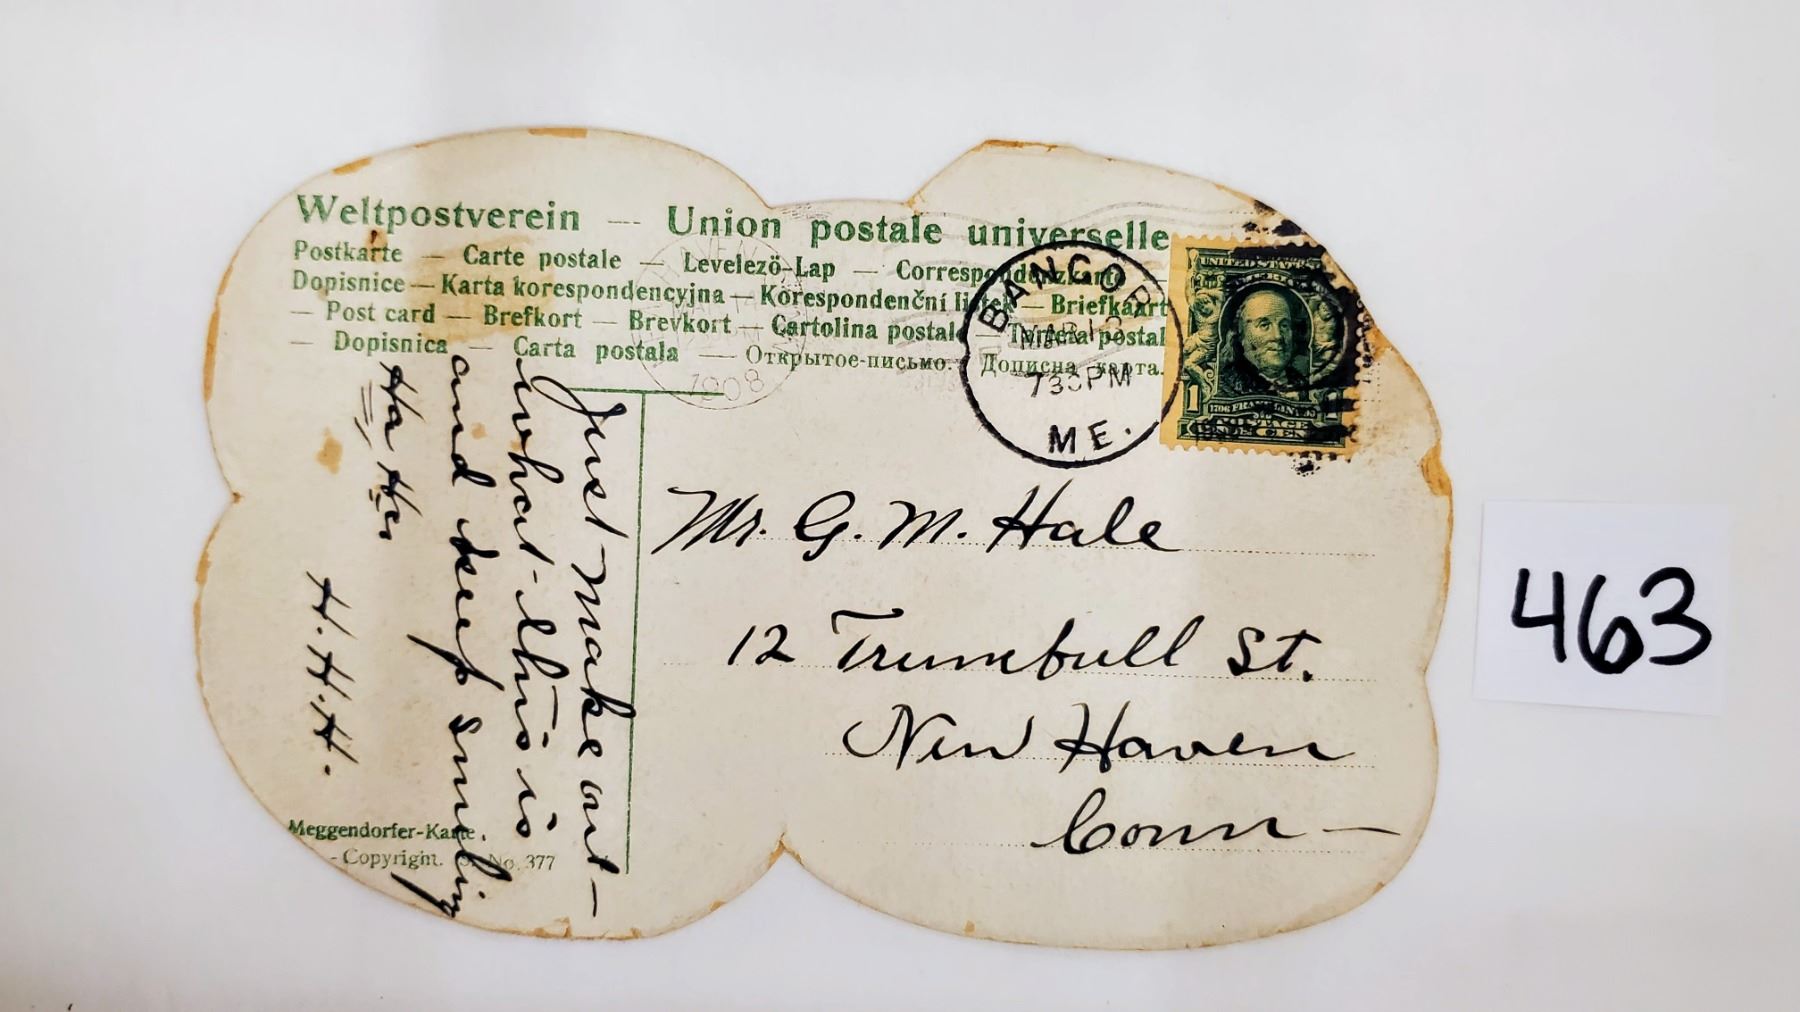 Weltpostverein — Union postale universelle
Postkarte — Carte postale — Levelező-Lap — Correspondenzkarte
Dopisnice — Karta korespondencyjna — Korespondenční lístek — Briefkaart
— Post card — Brefkort — Brevkort — Cartolina postale — Tarjeta postal
— Dopisnica — Carta postala — Открытое-письмо. Дописна карта.
BANGOR
MAR 13
730PM
ME.
1908
UNITED STATES
1
1706 FRANKLIN 1790
POSTAGE
ONE CENT
Mr. G. M. Hale
12 Trumbull St.
New Haven
Conn —
Just make out —
what this is
and keep smiling
Ha Ha
H.H.H.
Meggendorfer-Karte.
- Copyright. No. 377
463